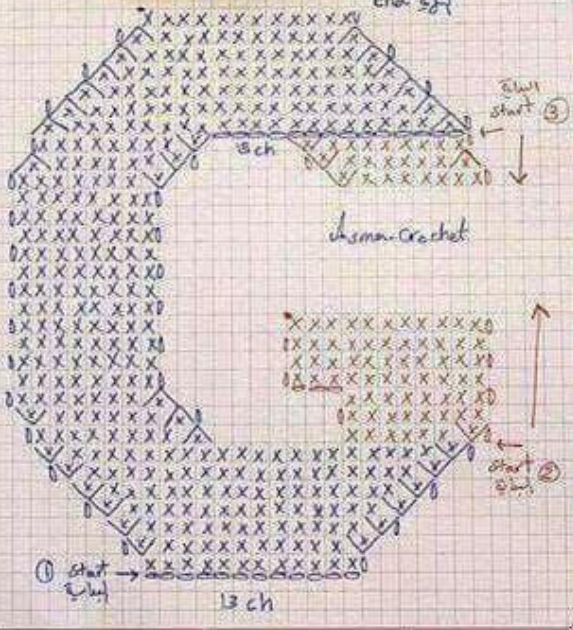 البداية
start ③
8 ch
Asma.Crochet
start ②
البداية
① start
البداية
13 ch